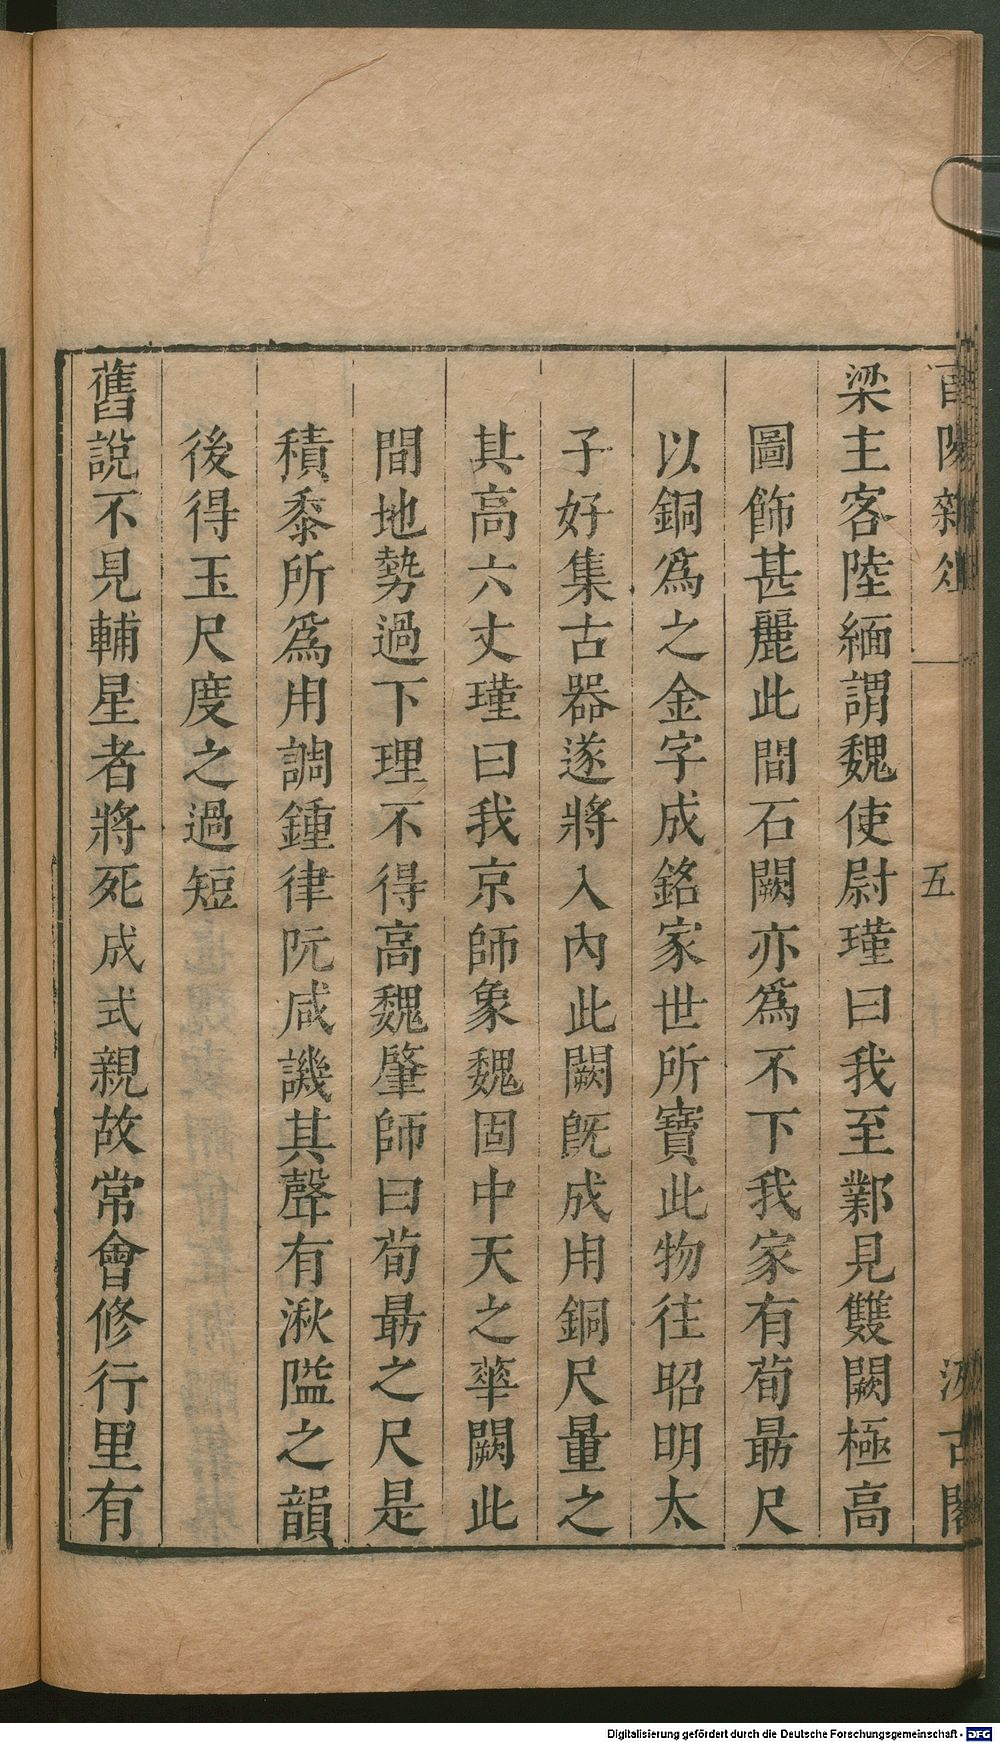 酉陽雜俎 五 汲古閣
梁主客陸緬謂魏使尉瑾曰我至鄴見雙闕極高
圖飾甚麗此間石闕亦爲不下我家有荀勗尺
以銅爲之金字成銘家世所寶此物往昭明太
子好集古器遂將入內此闕旣成用銅尺量之
其高六丈瑾曰我京師象魏固中天之華闕此
間地勢過下理不得高魏肇師曰荀勗之尺是
積黍所爲用調鍾律阮咸譏其聲有湫隘之韻
後得玉尺度之過短
舊說不見輔星者將死成式親故常會修行里有
Digitalisierung gefördert durch die Deutsche Forschungsgemeinschaft - DFG